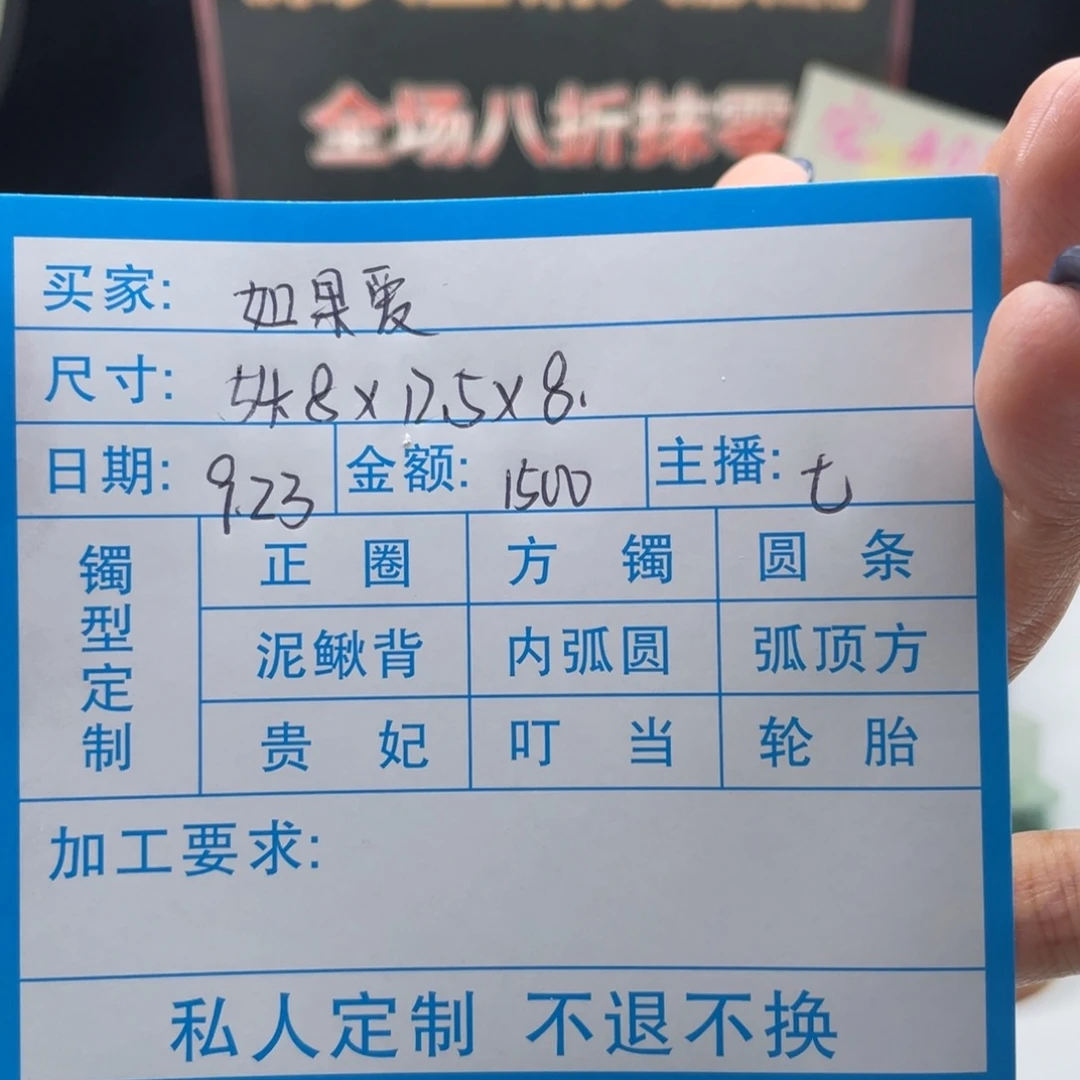 全场八折抹零
买家: 如果爱
尺寸: 54.8×12.5×8.
日期: 9.23 金额: 1500 主播: 七
镯型定制
正圈 方镯 圆条
泥鳅背 内弧圆 弧顶方
贵妃 叮当 轮胎
加工要求:
私人定制 不退不换